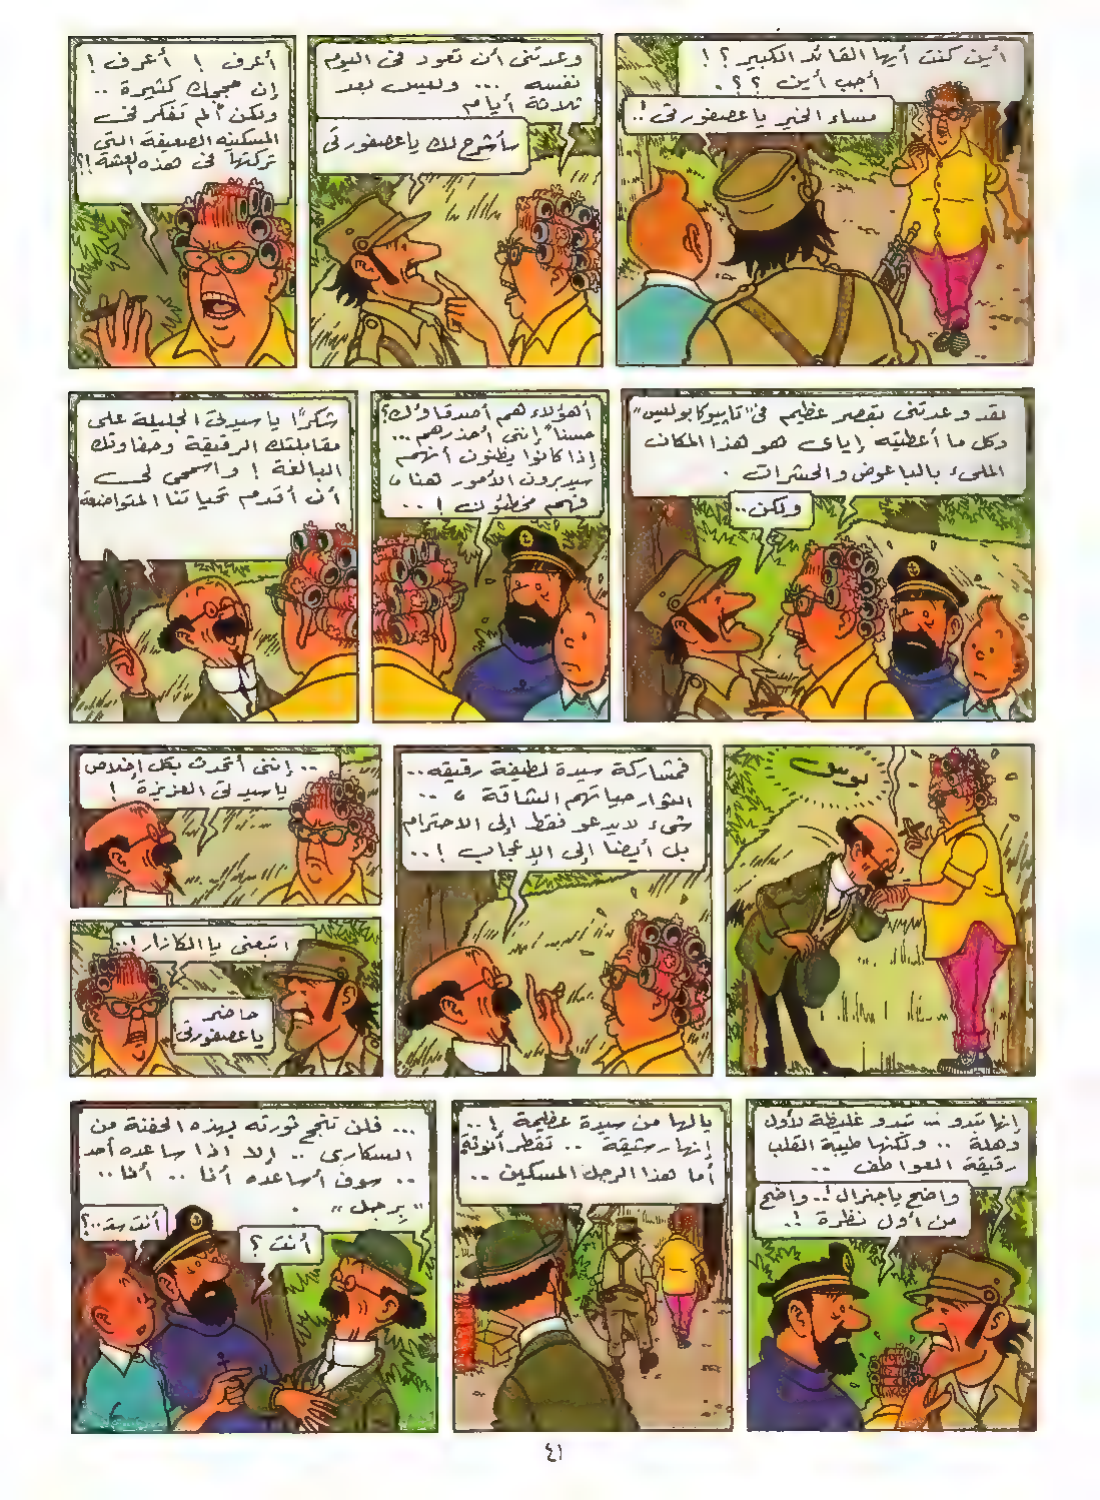 أين كنت أيها القائد الكبير؟!
أجب أين ؟؟.
مساء الخير يا عصفورتى!..
وعدتنى أن تعود فى اليوم
نفسه ... وليس بعد
ثلاثة أيام
سأشرح لك يا عصفورتى
أعرف ! أعرف !
إن حججك كثيرة ..
ولكن ألم تفكر فى
المسكينة الضعيفة التى
تركتها فى هذه العشة؟!
لقد وعدتنى بقصر عظيم فى "تابيوكابوليس"
وكل ما أعطيته إياى هو هذا المكان
الملىء بالباعوض والحشرات .
ولكن..
أهؤلاء هم أصدقاؤك؟
حسناً إننى أحذرهم...
إذا كانوا يظنون أنهم
سيديرون الأمور هنا،
فهم مخطئون !..
شكرًا يا سيدتى الجليلة على
مقابلتك الرقيقة وحفاوتك
البالغة ! واسمحى لى
أن أقدم تحياتنا المتواضعة
بوس
فمشاركة سيدة لطيفة رقيقة..
الثوار حياتهم الشاقة ، ..
شىء لا يدعو فقط إلى الاحترام
بل أيضا إلى الإعجاب !..
.. إننى أتحدث بكل إخلاص
يا سيدتى العزيزة !
اتبعنى يا الكازار!..
حاضر
يا عصفورتى!
إنها تبدو ... تبدو غليظة لأول
وهلة .. ولكنها طيبة القلب
رقيقة العواطف ..
واضح يا جنرال!.. واضح
من أول نظرة !.
يا لها من سيدة عظيمة !..
إنها رشيقة .. تقطر أنوثة
أما هذا الرجل المسكين ..
... فلن تنجح ثورته بهذه الحفنة من
السكارى .. إلا اذا ساعده أحد
.. سوف أساعده أنا .. أنا ..
"برجل" .
أنت ؟
أنت سـ..؟
٤١